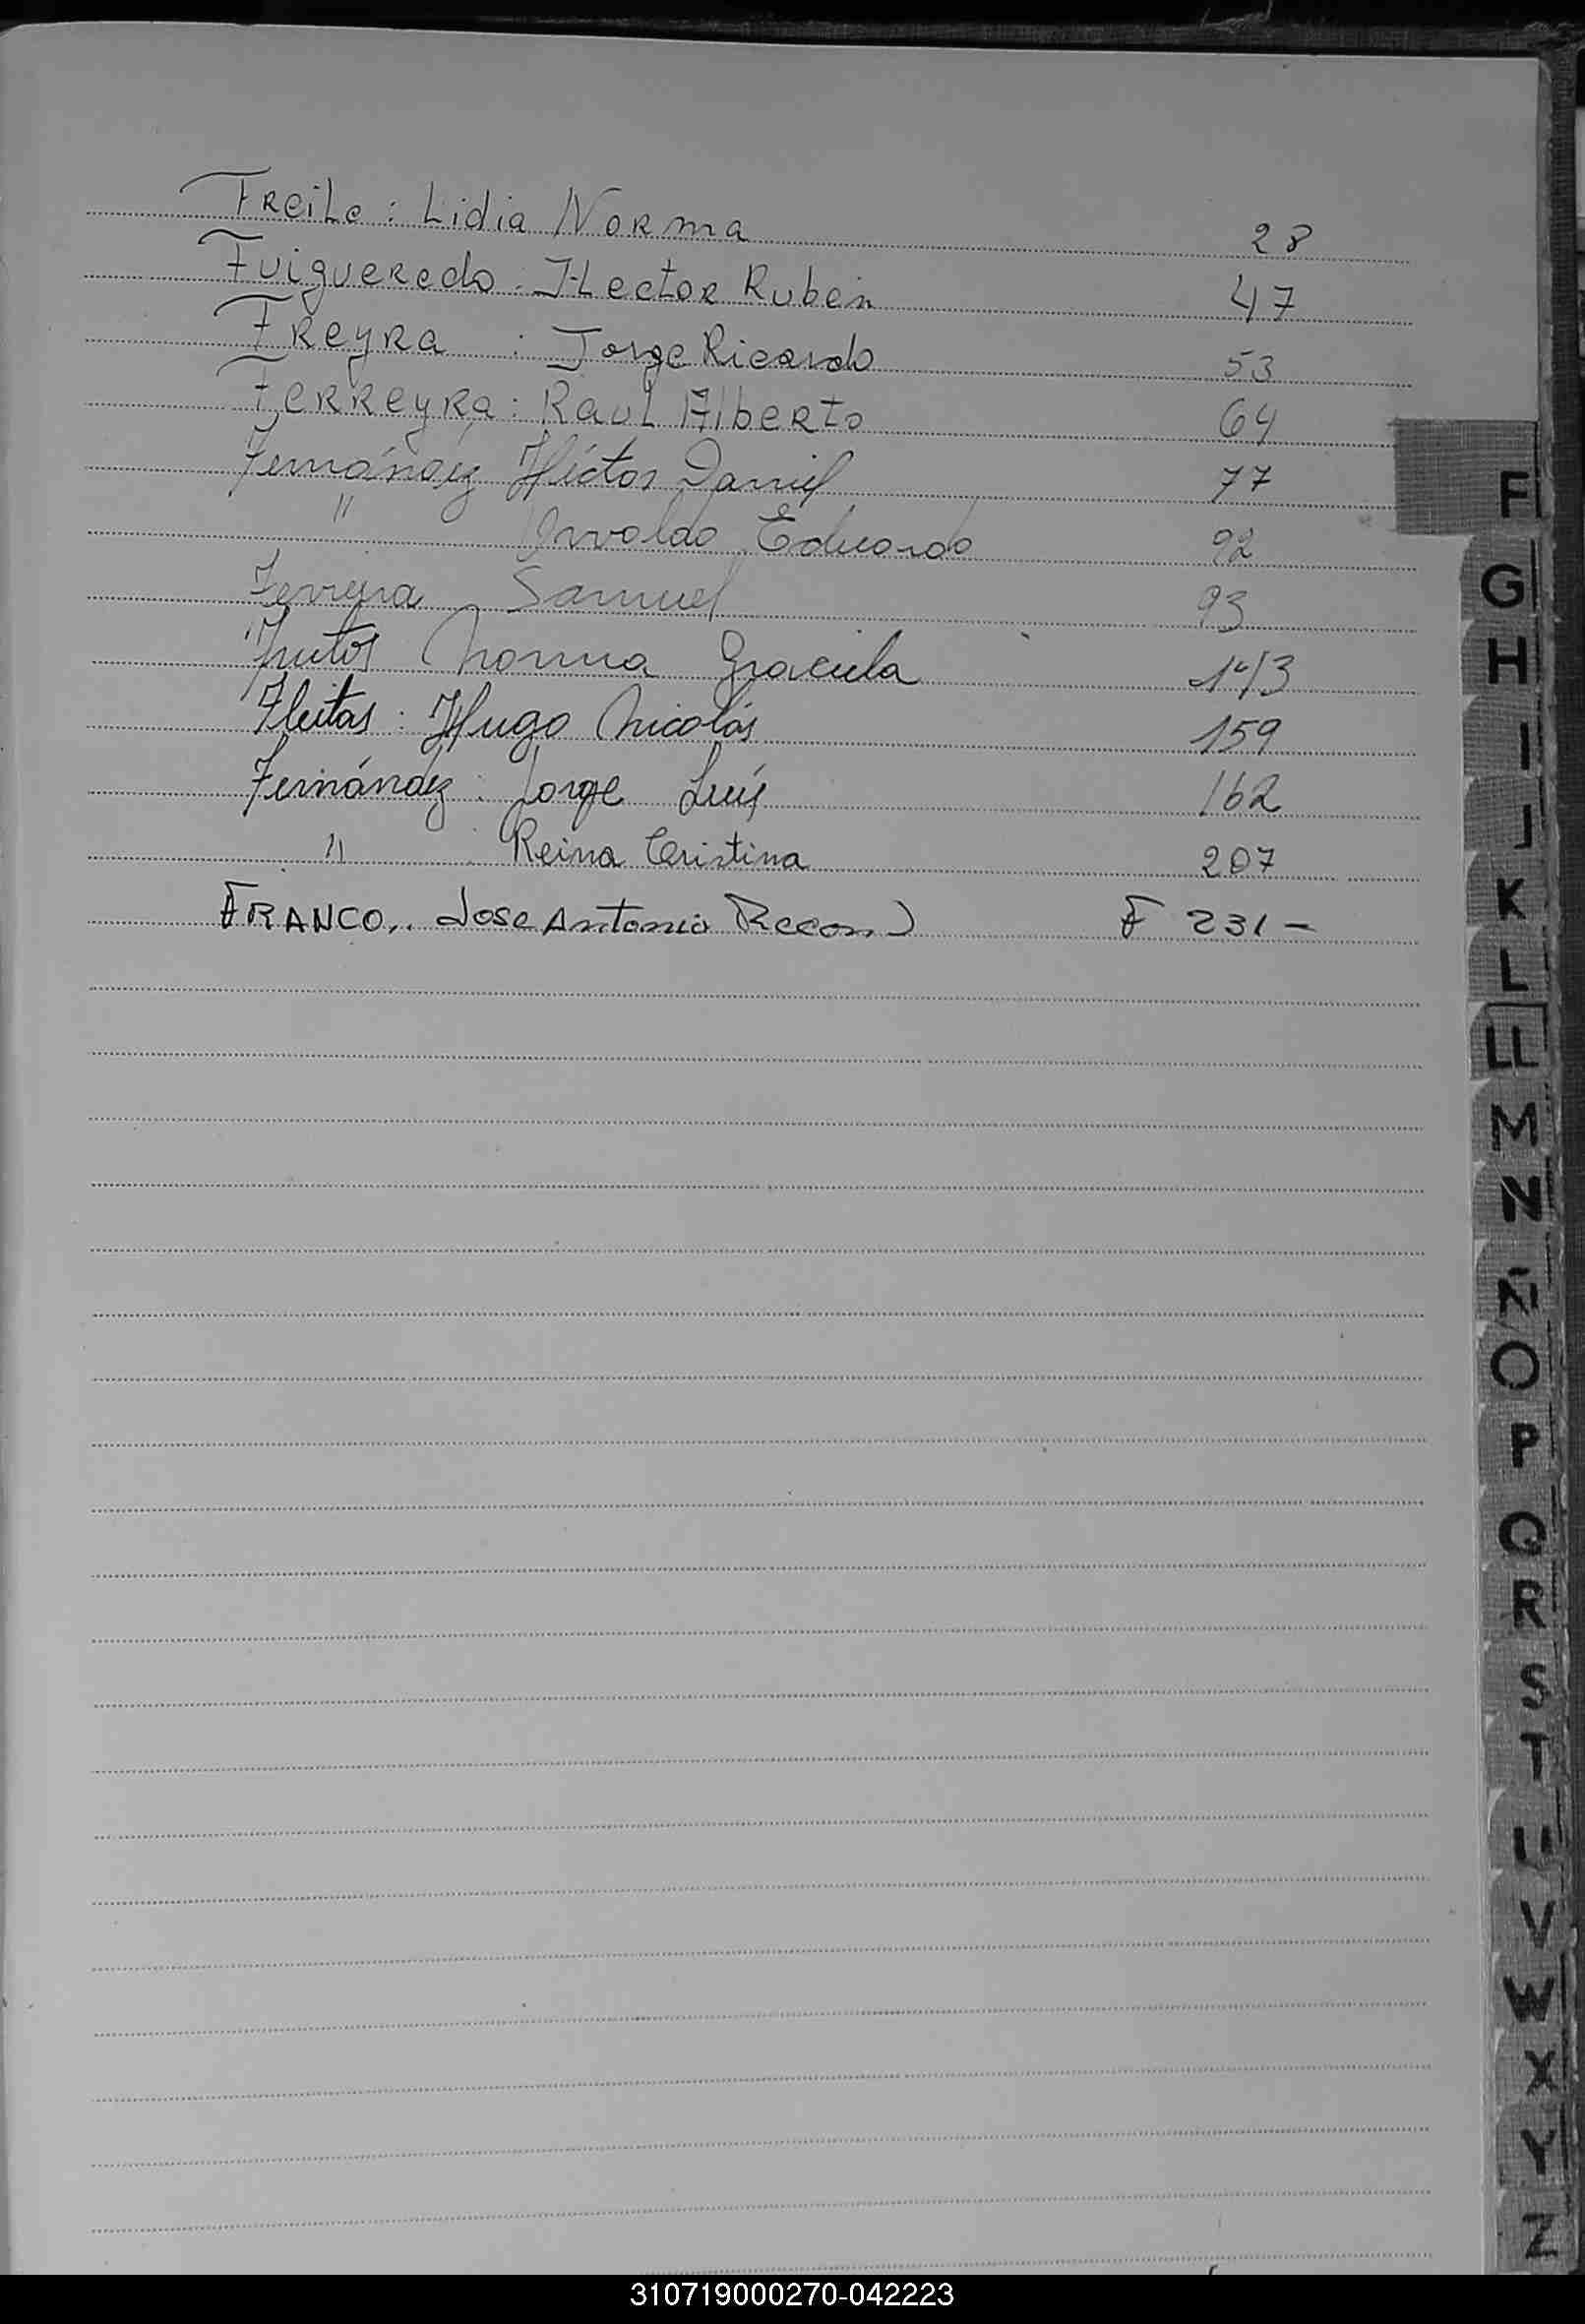 Freile: Lidia Norma 28
Fuigueredo: Hector Rubén 47
Freyra : Jorge Ricardo 53
Ferreyra: Raul Alberto 64
Fernández Héctor Daniel 77
" Osvaldo Eduardo 92
Ferreyra Samuel 93
Frutos Norma Graciela 143
Fleitas: Hugo Nicolás 159
Fernández: Jorge Luís 162
" Reina Cristina 207
FRANCO.. Jose Antonio F 231-
F
G
H
I
J
K
L
LL
M
N
Ñ
O
P
Q
R
S
T
U
V
W
X
Y
Z
310719000270-042223